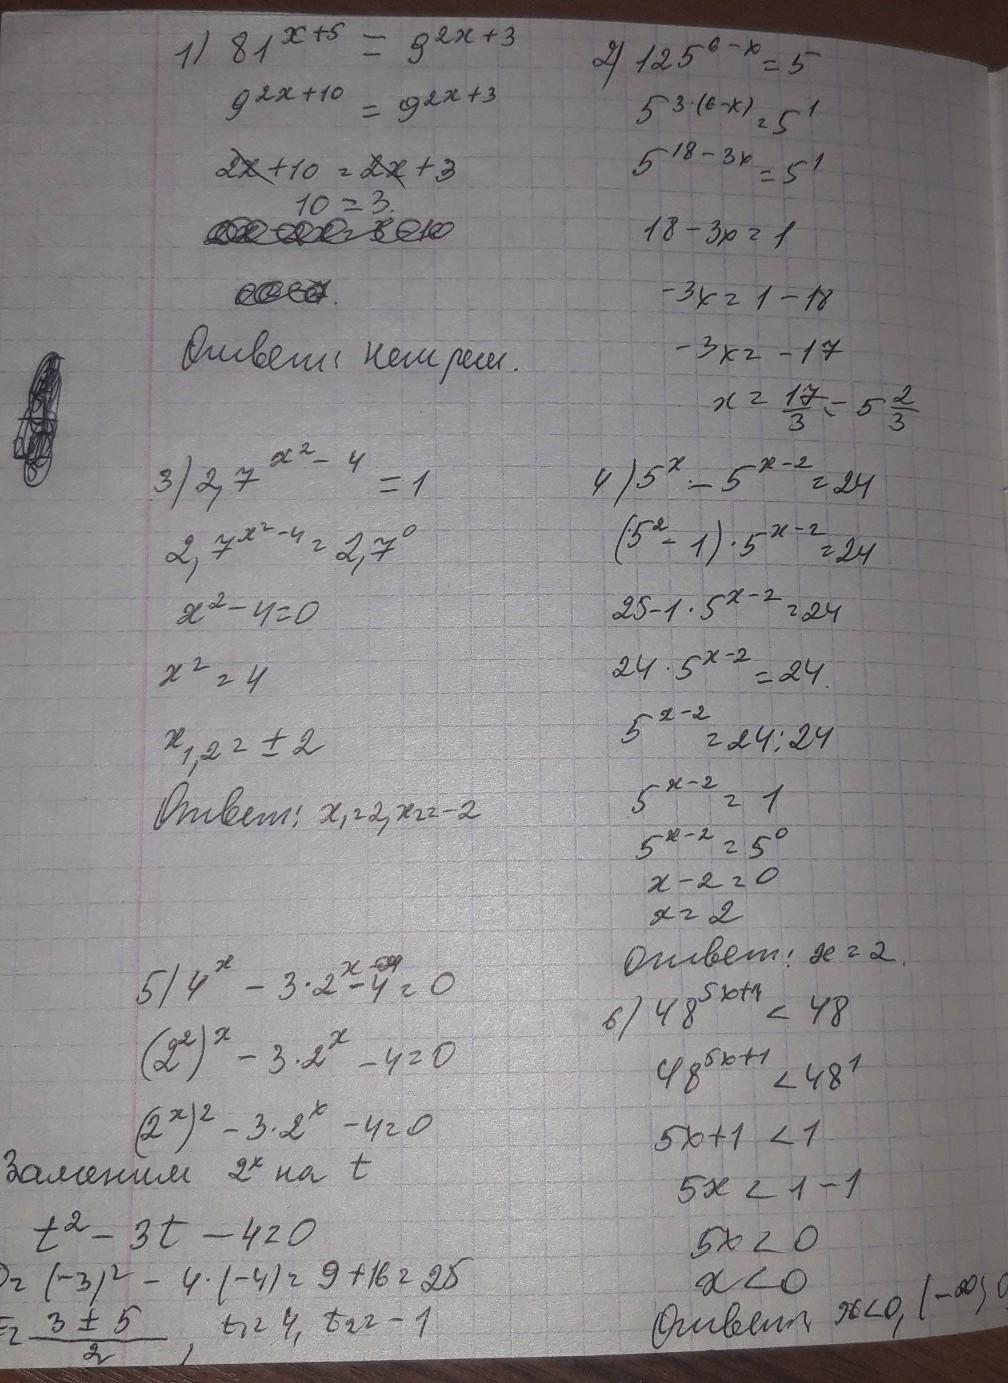 1) 81^{x+5} = 9^{2x+3}
9^{2x+10} = 9^{2x+3}
2x+10 = 2x+3
10 = 3.
Ответ: нет реш.
2) 125^{6-x} = 5
5^{3·(6-x)} = 5^1
5^{18-3x} = 5^1
18-3x = 1
-3x = 1-18
-3x = -17
x = 17/3 = 5 2/3
3) 2,7^{x^2-4} = 1
2,7^{x^2-4} = 2,7^0
x^2-4=0
x^2 = 4
x_{1,2} = ±2
Ответ: x_1=2, x_2=-2
4) 5^x - 5^{x-2} = 24
(5^2-1)·5^{x-2} = 24
25-1·5^{x-2} = 24
24·5^{x-2} = 24.
5^{x-2} = 24:24
5^{x-2} = 1
5^{x-2} = 5^0
x-2=0
x=2
Ответ: x=2.
5) 4^x - 3·2^x - 4 = 0
(2^2)^x - 3·2^x - 4=0
(2^x)^2 - 3·2^x - 4=0
Заменим 2^x на t
t^2 - 3t - 4=0
= (-3)^2 - 4·(-4) = 9+16 = 25
= 3±5/2, t_1=4, t_2=-1
6) 48^{5x+1} < 48
48^{5x+1} < 48^1
5x+1 < 1
5x < 1-1
5x < 0
x<0
Ответ: x<0, (-∞; 0